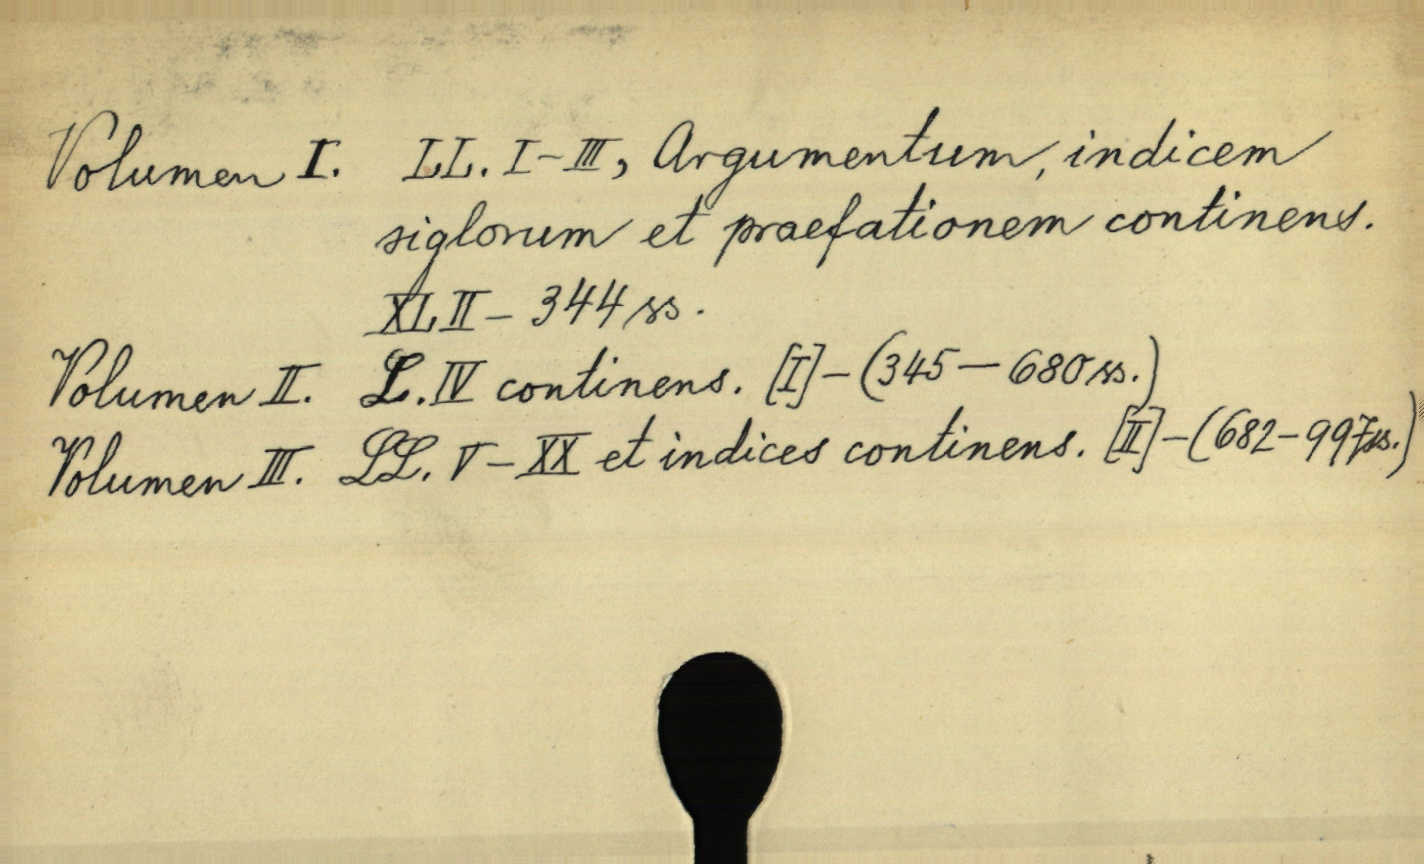 Volumen I. LL. I-III, Argumentum, indicem
siglorum et praefationem continens.
XLII - 344 ss.
Volumen II. L. IV continens. [I] - (345 - 680 ss.)
Volumen III. LL. V - XX et indices continens. [II] - (682 - 997 ss.)